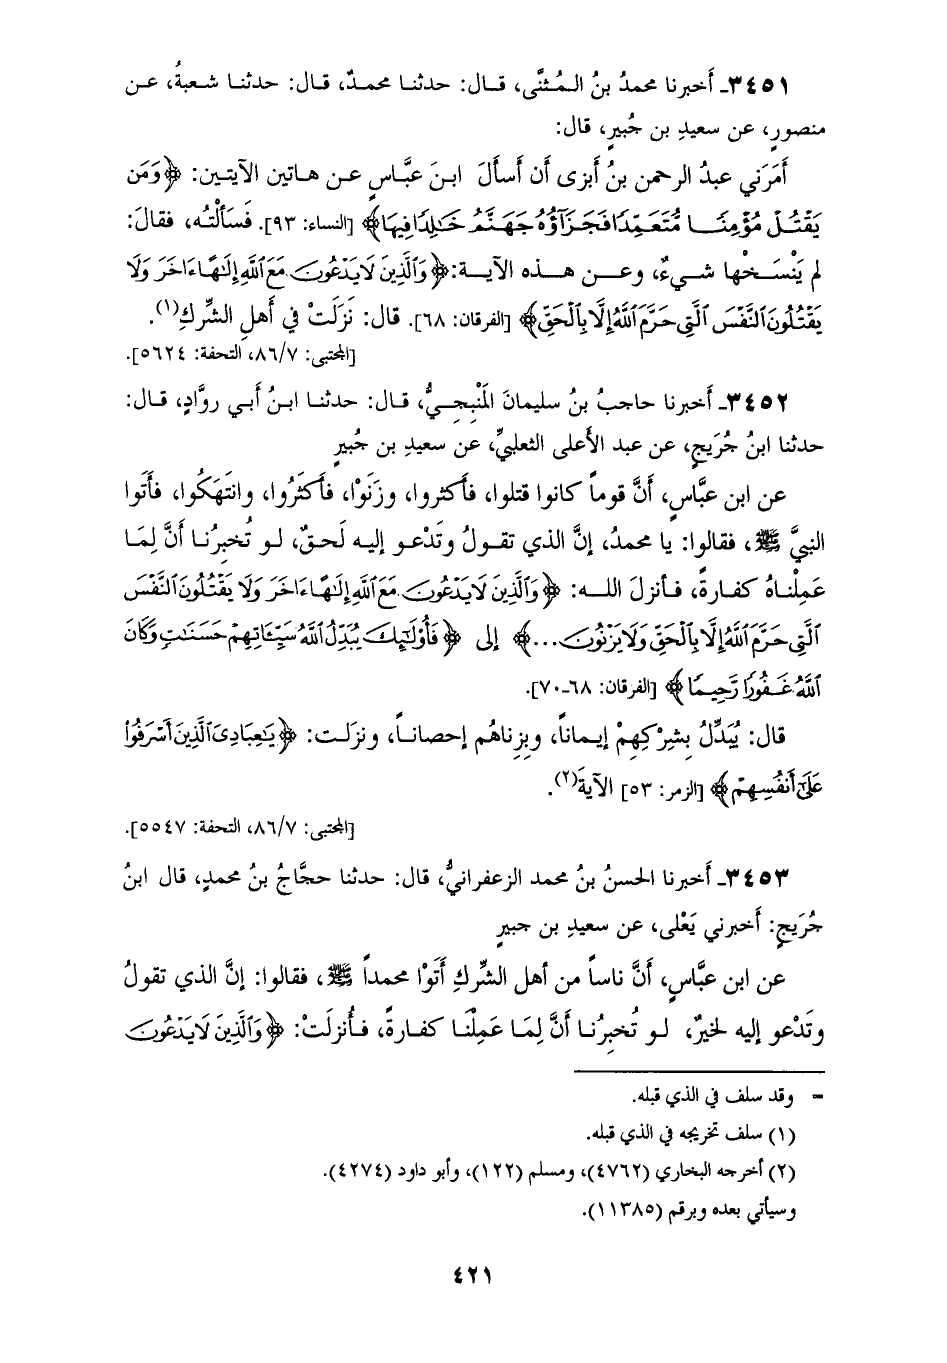 ٣٤٥١ـ أَخبرنا محمدُ بنُ الـمُثنَّى، قـال: حدثنـا محمـدٌ، قـال: حدثنـا شـعبةُ، عـن
منصورٍ، عن سعيدِ بن جُبيرٍ، قال:
أَمَرَني عبدُ الرحمن بنُ أَبزى أَن أَسأَلَ ابـنَ عبَّـاسٍ عـن هـاتين الآيتـين: ﴿وَمَن
يَقْتُلْ مُؤْمِنًا مُّتَعَمِّدًا فَجَزَآؤُهُ جَهَنَّمُ خَالِدًا فِيهَا﴾ [النساء: ٩٣]. فَسَأَلْتُه، فقالَ:
لم يَنْسَـخْها شـيءٌ، وعـن هـذه الآيـة: ﴿وَالَّذِينَ لَا يَدْعُونَ مَعَ اللَّهِ إِلَٰهًا ءَاخَرَ وَلَا
يَقْتُلُونَ النَّفْسَ الَّتِي حَرَّمَ اللَّهُ إِلَّا بِالْحَقِّ﴾ [الفرقان: ٦٨]. قال: نَزَلَتْ في أَهلِ الشِّركِ(١).
[المجتبى: ٨٦/٧، التحفة: ٥٦٢٤].
٣٤٥٢ـ أَخبرنا حاجبُ بنُ سليمانَ المَنْبِجيُّ، قـال: حدثنـا ابـنُ أَبي روَّادٍ، قـال:
حدثنا ابنُ جُرَيجٍ، عن عبد الأَعلى الثعلبيِّ، عن سعيدِ بن جُبيرٍ
عن ابن عبَّاسٍ، أَنَّ قوماً كانوا قتلوا، فأَكثروا، وزَنَوْا، فأَكثَرُوا، وانتَهَكُوا، فأَتَوا
النبيَّ ﷺ، فقالوا: يا محمدُ، إنَّ الذي تقـولُ وتَدْعـو إليـه لَحـقٌ، لـو تُخبِرُنـا أَنَّ لِمَـا
عَمِلْنـاهُ كفـارةً، فـأَنزلَ اللـه: ﴿وَالَّذِينَ لَا يَدْعُونَ مَعَ اللَّهِ إِلَٰهًا ءَاخَرَ وَلَا يَقْتُلُونَ النَّفْسَ
الَّتِي حَرَّمَ اللَّهُ إِلَّا بِالْحَقِّ وَلَا يَزْنُونَ...﴾ إلى ﴿فَأُوْلَٰئِكَ يُبَدِّلُ اللَّهُ سَيِّئَاتِهِمْ حَسَنَٰتٍ وَكَانَ
اللَّهُ غَفُورًا رَّحِيمًا﴾ [الفرقان: ٦٨-٧٠].
قال: يُبَدِّلُ بِشِرْكِهِمْ إيـماناً، وبِزِناهُم إحصانـاً، ونزلَـت: ﴿يَٰعِبَادِىَ الَّذِينَ أَسْرَفُوا
عَلَىٰ أَنفُسِهِمْ﴾ [الزمر: ٥٣] الآيةَ(٢).
[المجتبى: ٨٦/٧، التحفة: ٥٥٤٧].
٣٤٥٣ـ أَخبرنا الحسنُ بنُ محمد الزعفرانيُّ، قال: حدثنا حجَّاجُ بنُ محمدٍ، قال ابنُ
جُرَيجٍ: أَخبرني يَعْلى، عن سعيدِ بن جبيرٍ
عن ابن عبَّاسٍ، أَنَّ ناساً من أَهل الشِّركِ أَتَوْا محمداً ﷺ، فقالوا: إنَّ الذي تقولُ
وتَدْعو إليه لخيرٌ، لـو تُخبِرُنـا أَنَّ لِمَـا عَمِلْنَـا كفـارةً، فـأُنزلَـتْ: ﴿وَالَّذِينَ لَا يَدْعُونَ
= وقد سلف في الذي قبله.
(١) سلف تخريجه في الذي قبله.
(٢) أخرجه البخاري (٤٧٦٢)، ومسلم (١٢٢)، وأبو داود (٤٢٧٤).
وسيأتي بعده وبرقم (١١٣٨٥).
٤٢١